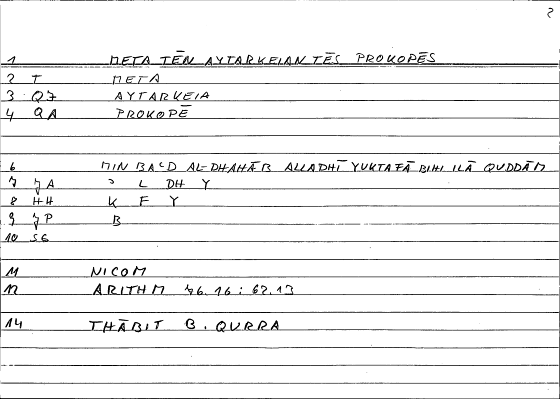 2
1 META TĒN AYTARKEIAN TĒS PROKOPĒS
2 T META
3 QJ AYTARKEIA
4 QA PROKOPĒ
6 MIN BAʿD AL-DHAHĀB ALLADHĪ YUKTAFĀ BIHI ILĀ QUDDĀM
7 JA ʾ L DH Y
8 HH K F Y
9 JP B
10 SG
11 NICOM
12 ARITHM 46.16 : 62.13
14 THĀBIT B. QURRA